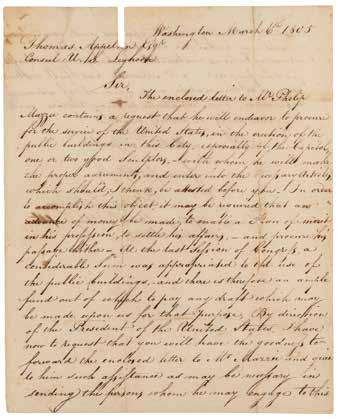 Washington March 6th 1805
Thomas Appelton Esqr.
Consul U.S. Leghorn
Sir,
The enclosed letter to Mr. Philip
Mazzei contains a request that he will endeavor to procure
for the service of the United States, in the erection of the
public buildings in this City, especially of the Capitol,
one or two good Sculptors, with whom he will make
the proper agreements, and enter into the necessary Articles
which should, I think, be attested before you. In order
to accomplish this object it may be required that an
advance of money be made, to enable a Man of merit
in his profession to settle his affairs, and procure his
passage hither. At the last session of Congress, a
considerable Sum was appropriated to the use of
the public buildings, and there is therefore an ample
fund out of which to pay any draft which may
be made upon us for that purpose. By direction
of the President of the United States, I have
now to request that you will have the goodness to
forward the enclosed letter to Mr. Mazzei and give
to him such assistance as may be necessary in
sending the persons whom he may engage to this